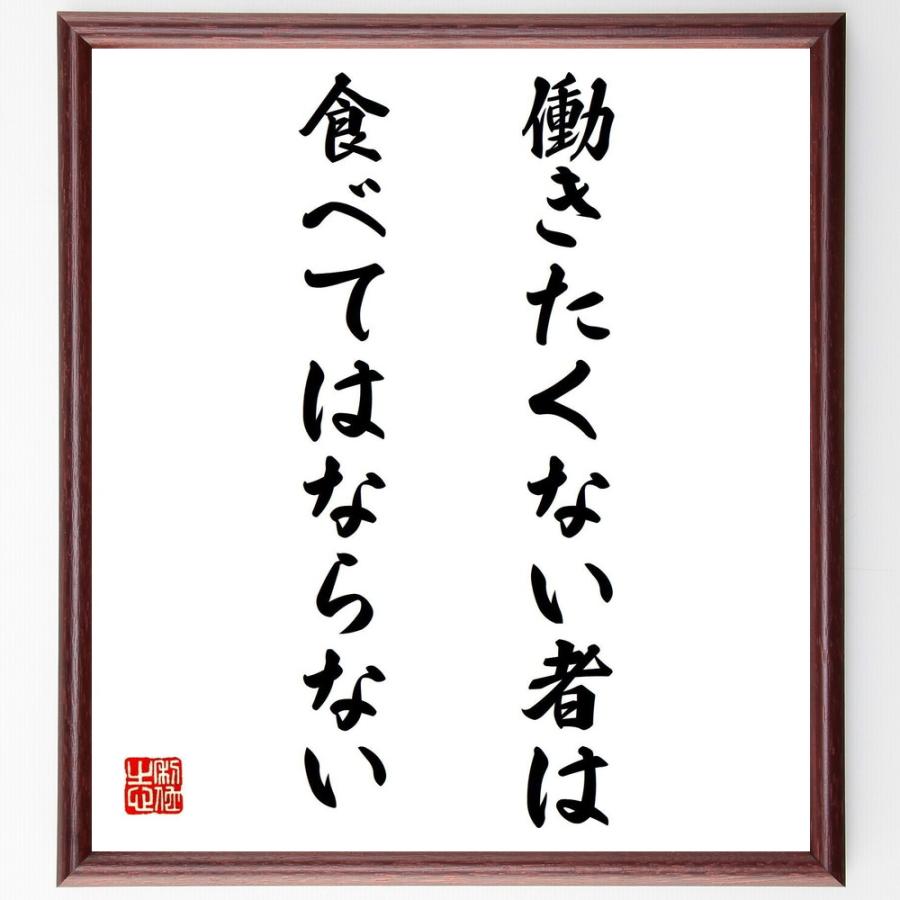 働きたくない者は
食べてはならない